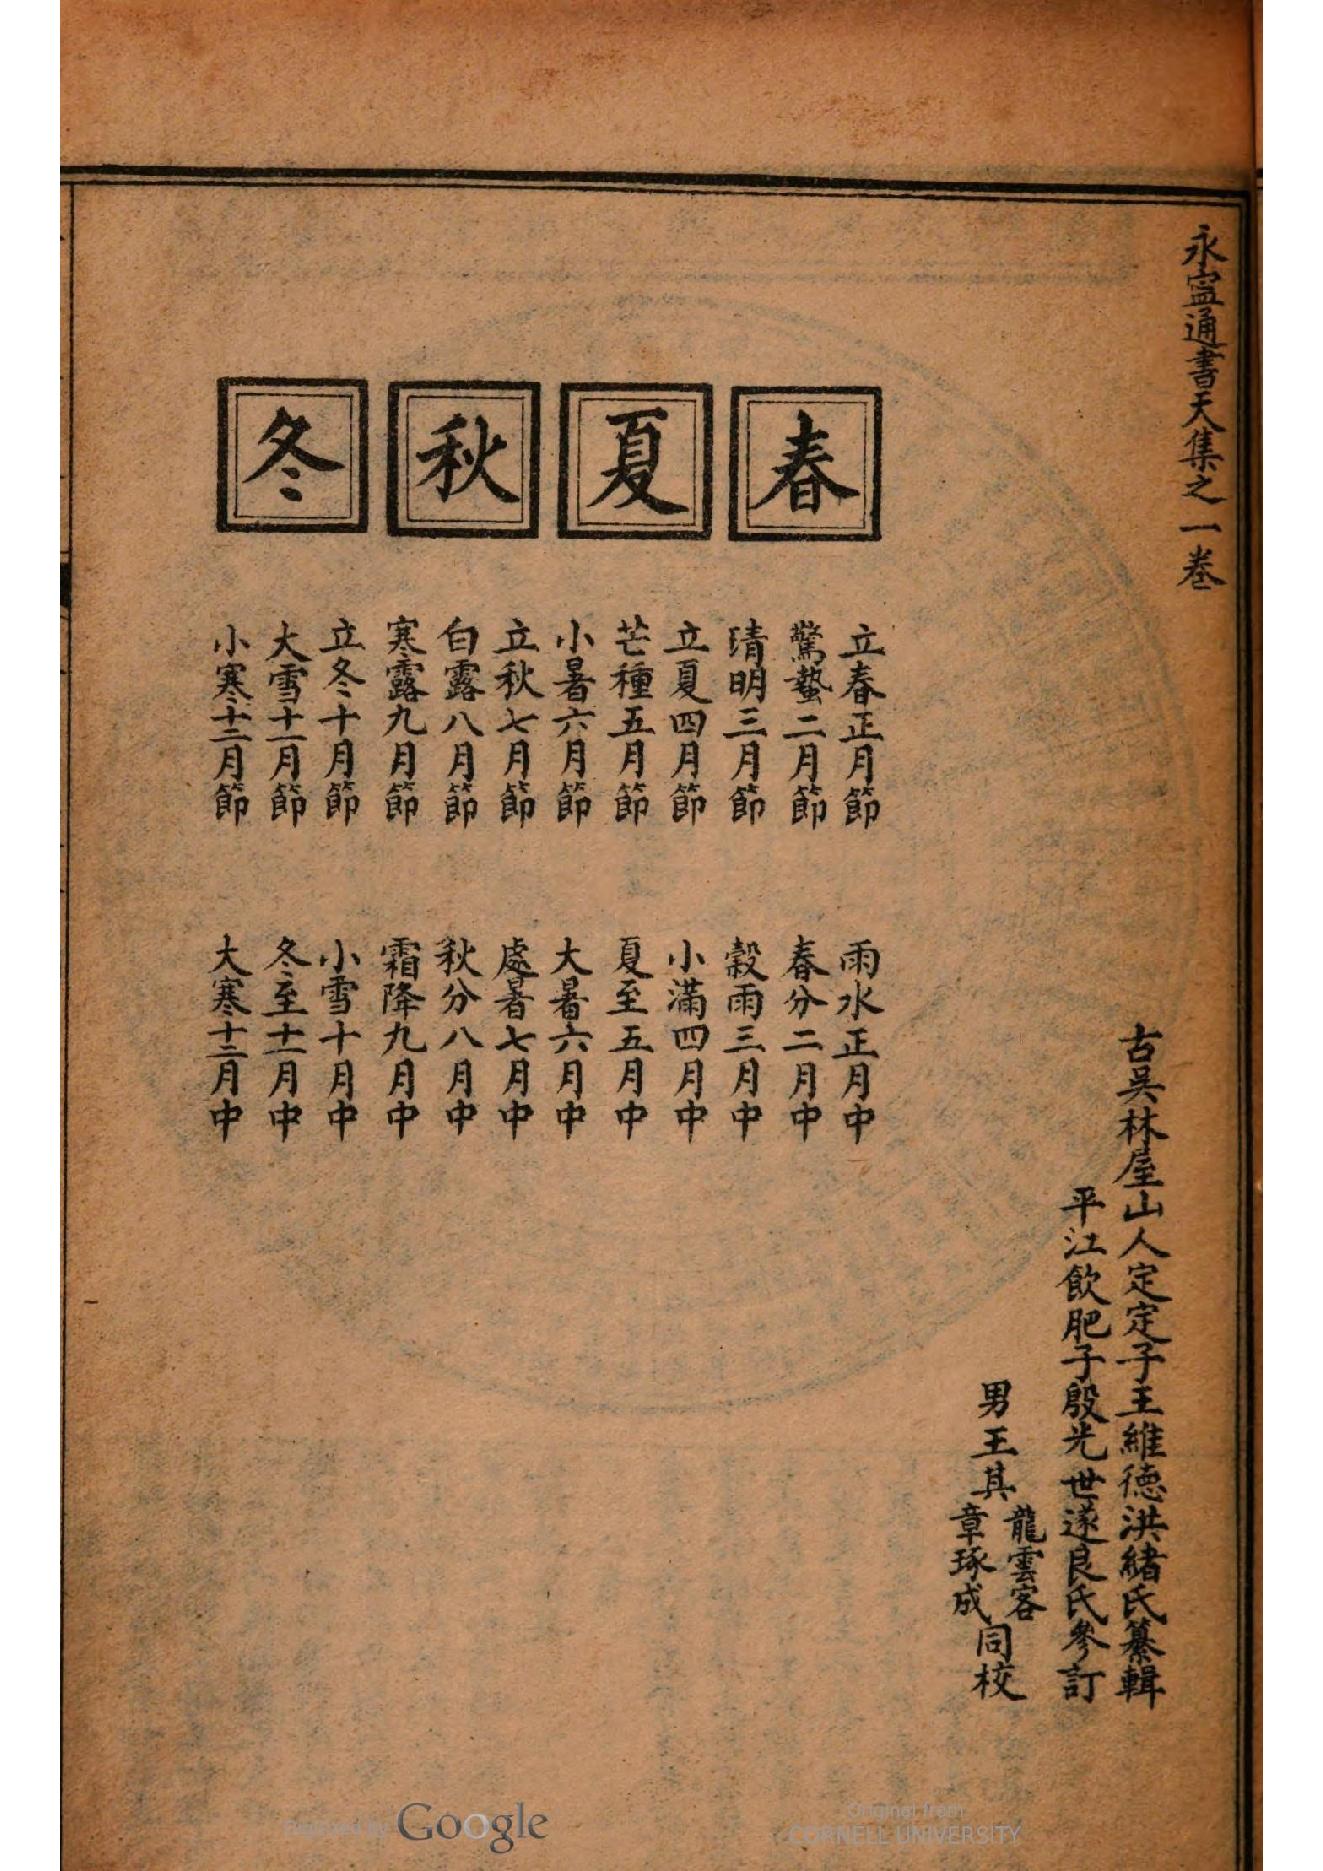 永寍通書天集之一卷
古吳林屋山人定定子王維德洪緒氏纂輯
平江飲肥子殷光世遂良氏參訂
男王其龍雲客章琢成同校
春
夏
秋
冬
立春正月節
驚蟄二月節
清明三月節
立夏四月節
芒種五月節
小暑六月節
立秋七月節
白露八月節
寒露九月節
立冬十月節
大雪十一月節
小寒十二月節
雨水正月中
春分二月中
穀雨三月中
小滿四月中
夏至五月中
大暑六月中
處暑七月中
秋分八月中
霜降九月中
小雪十月中
冬至十一月中
大寒十二月中
Digitized by Google
Original from
CORNELL UNIVERSITY